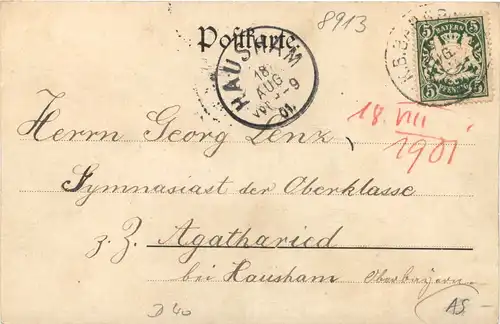 8913
Postkarte
5 BAYERN 5
5 PFENNIG 5
HAUSHAM
18
AUG
VOR 8-9
01.
18. VIII
1901
Herrn Georg Lenz,
Gymnasiast der Oberklasse
z. Z. Agatharied
bei Hausham Oberbayern.
D 40
AS-